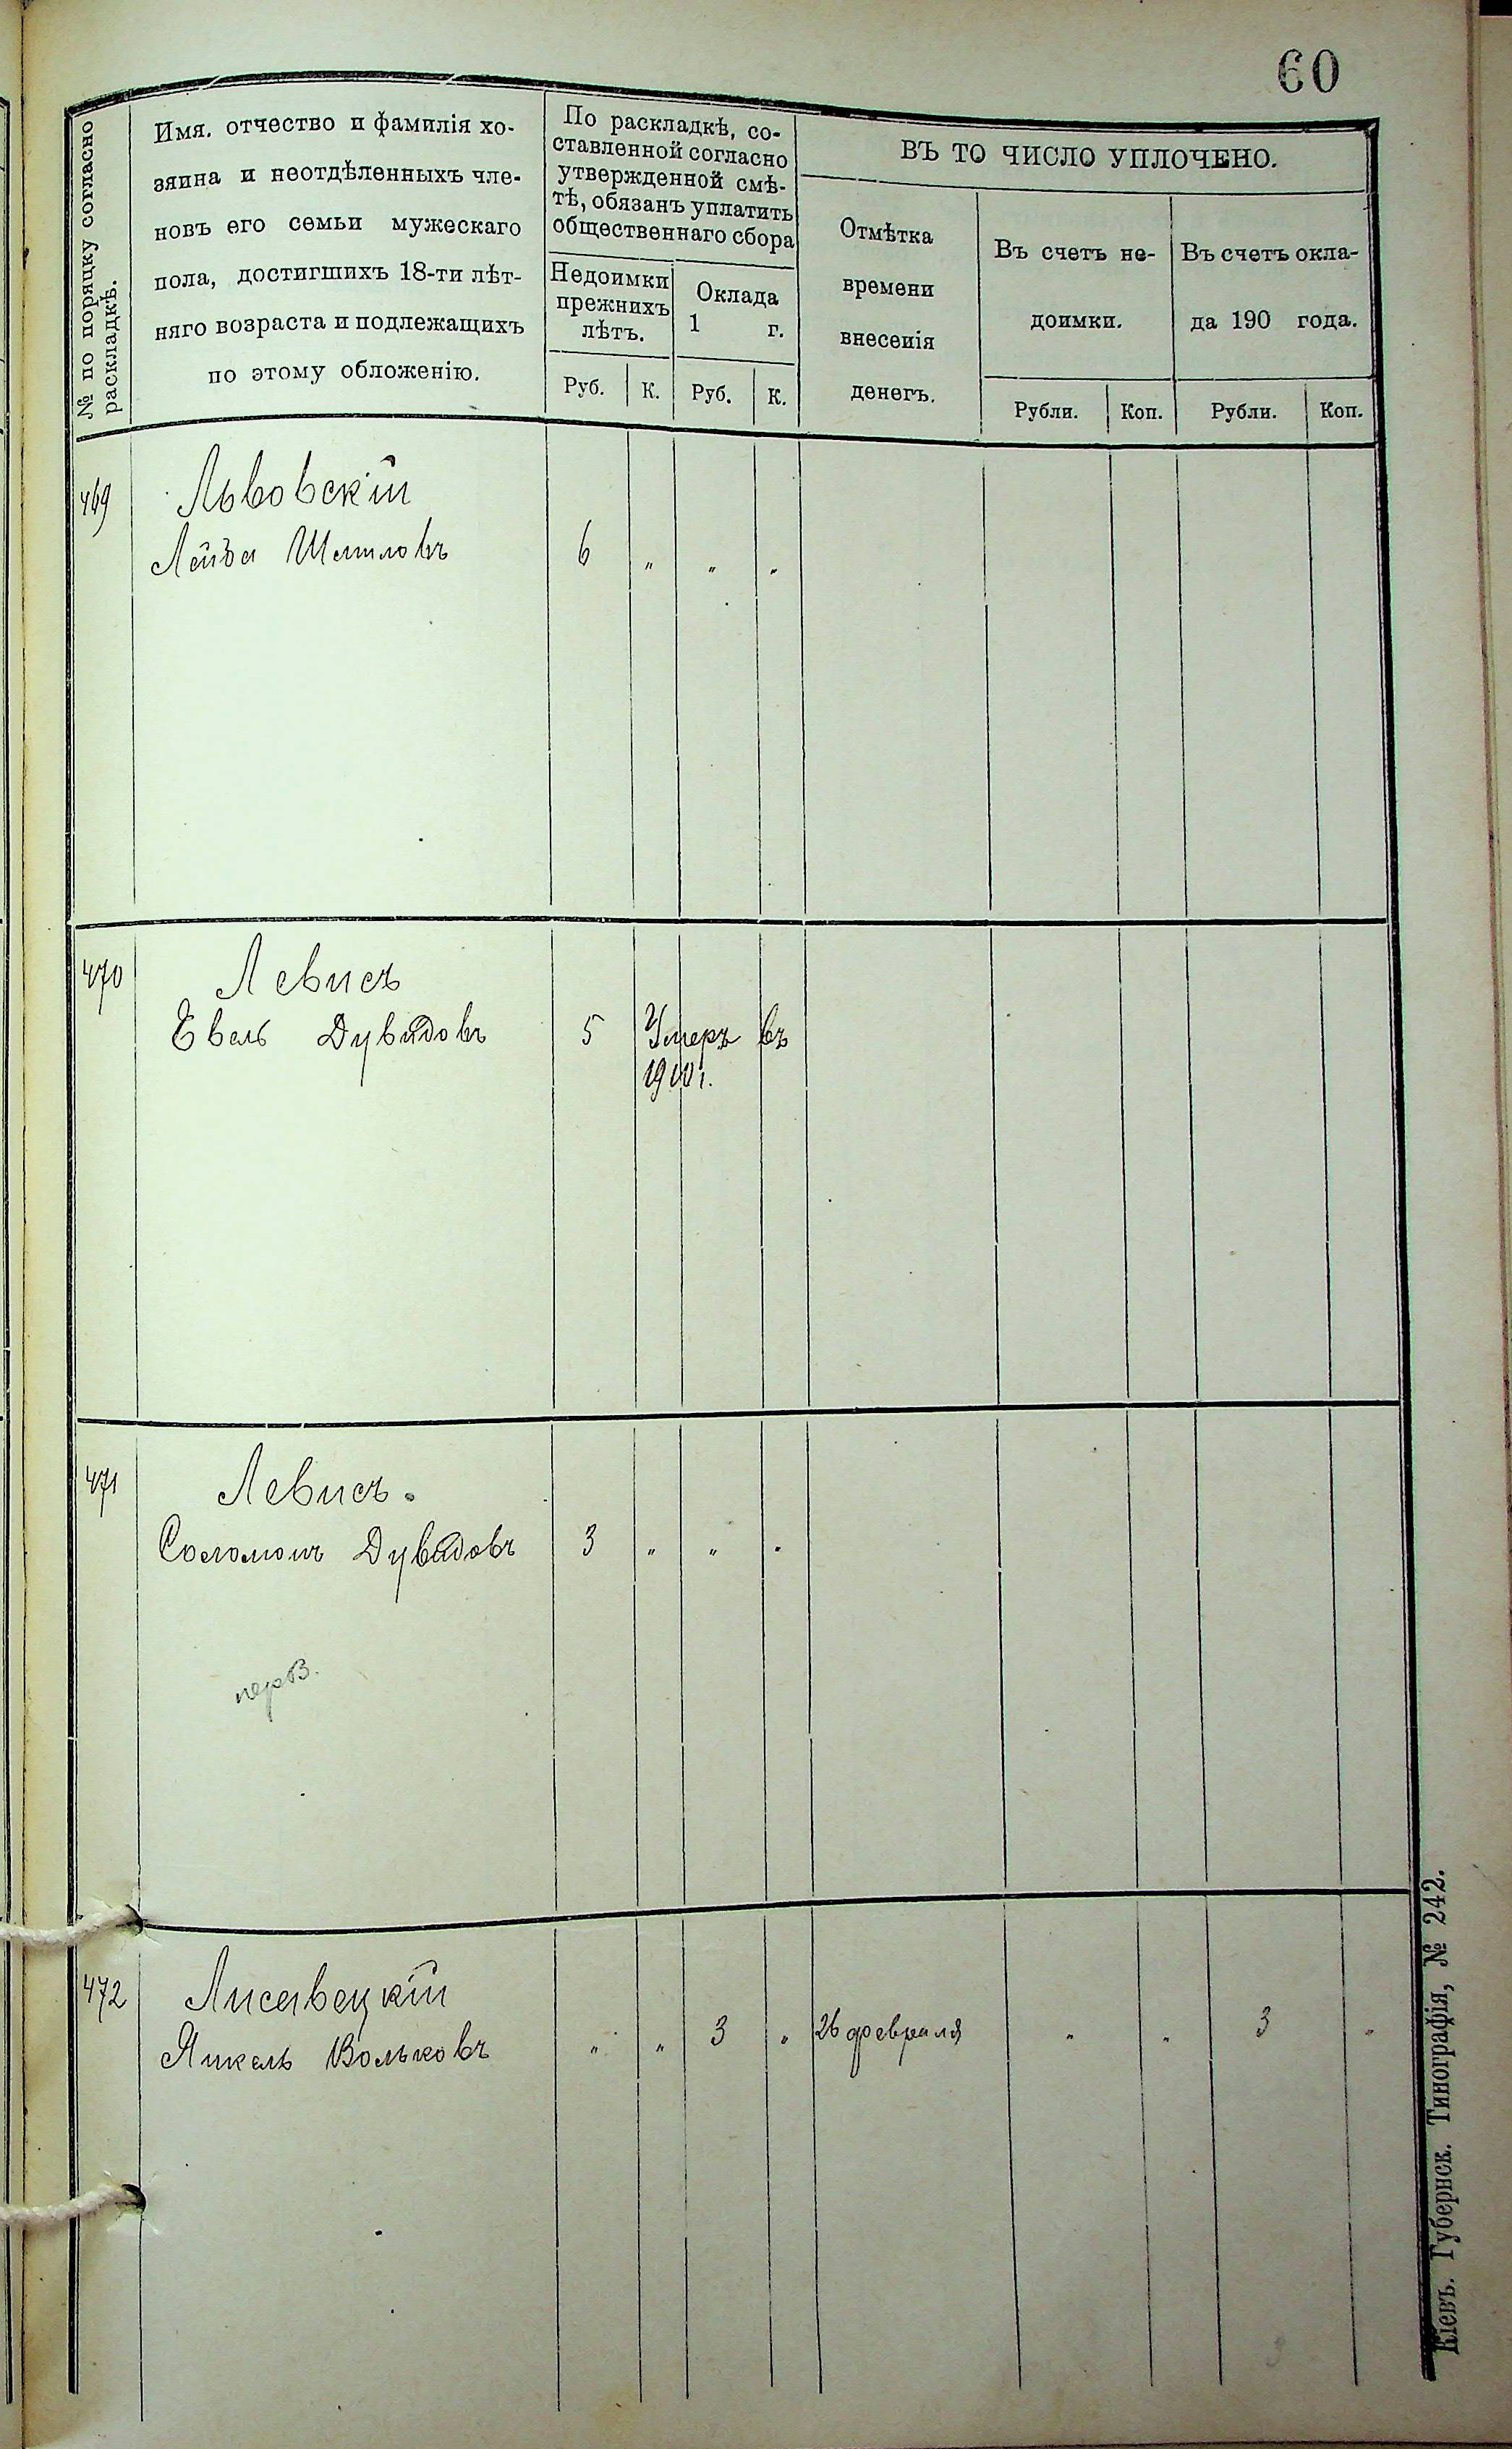 60
№ по порядку согласно
раскладкѣ.
Имя, отчество и фамилія хо-
зяина и неотдѣленныхъ чле-
новъ его семьи мужескаго
пола, достигшихъ 18-ти лѣт-
няго возраста и подлежащихъ
по этому обложенію.
По раскладкѣ, со-
ставленной согласно
утвержденной смѣ-
тѣ, обязанъ уплатить
общественнаго сбора
Недоимки
прежнихъ
лѣтъ.
Оклада
1 г.
Руб. К. Руб. К.
ВЪ ТО ЧИСЛО УПЛОЧЕНО.
Отмѣтка
времени
внесенія
денегъ.
Въ счетъ не-
доимки.
Въ счетъ окла-
да 190 года.
Рубли. Коп. Рубли. Коп.
469 Львовскій
Лейба 6 „ „ „
470 Левисъ
Евель Дувидовъ 5 Умеръ въ
471 Левисъ.
Соломонъ Дувидовъ 3 „ „ „
472 Лисавецкій
Янкель Вольковъ „ „ 3 „ 26 февраля „ „ 3 „
Кіевъ. Губернск. Типографія, № 242.